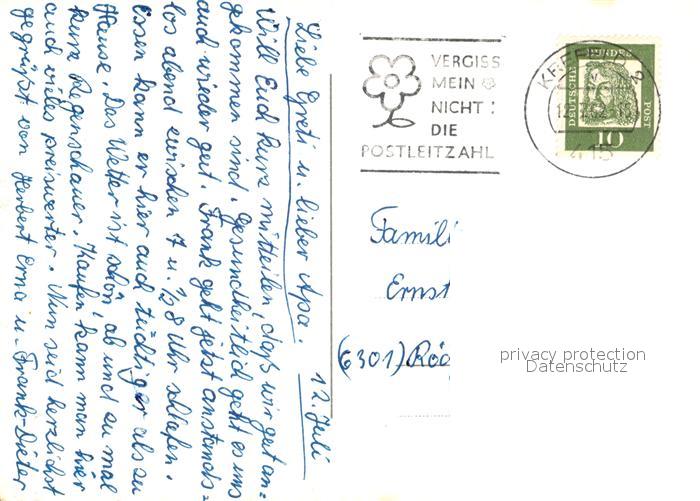 Liebe Greti u. lieber Apa! 12. Juli
Will Euch kurz mitteilen, daß wir gut an=
gekommen sind. Gesundheitlich geht es uns
auch wieder gut. Frank geht jetzt anstands=
los abend zwischen 7 u. ½8 Uhr schlafen.
Essen kann er hier auch tüchtiger als zu
Hause. Das Wetter ist schön, ab und zu mal
kurze Regenschauer. Kaufen kann man hier
auch vieles preiswerter. Nun seid herzlichst
gegrüßt von Herbert Erna u. Frank-Dieter
VERGISS
MEIN
NICHT:
DIE
POSTLEITZAHL
KREFELD 2
415
DEUTSCHE BUNDESPOST
10
Famili
Ernst
(6301) Röd
privacy protection
Datenschutz